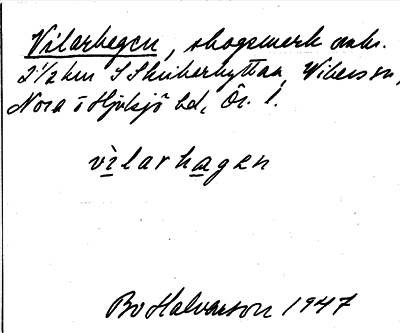 Vilarhagen, skogsmark
2 1/2 km S Skrikarhyttan, Wikers sn,
Nora o Hjulsjö bd, Ör. l.
vilarhagen
Bo Halvarson 1947